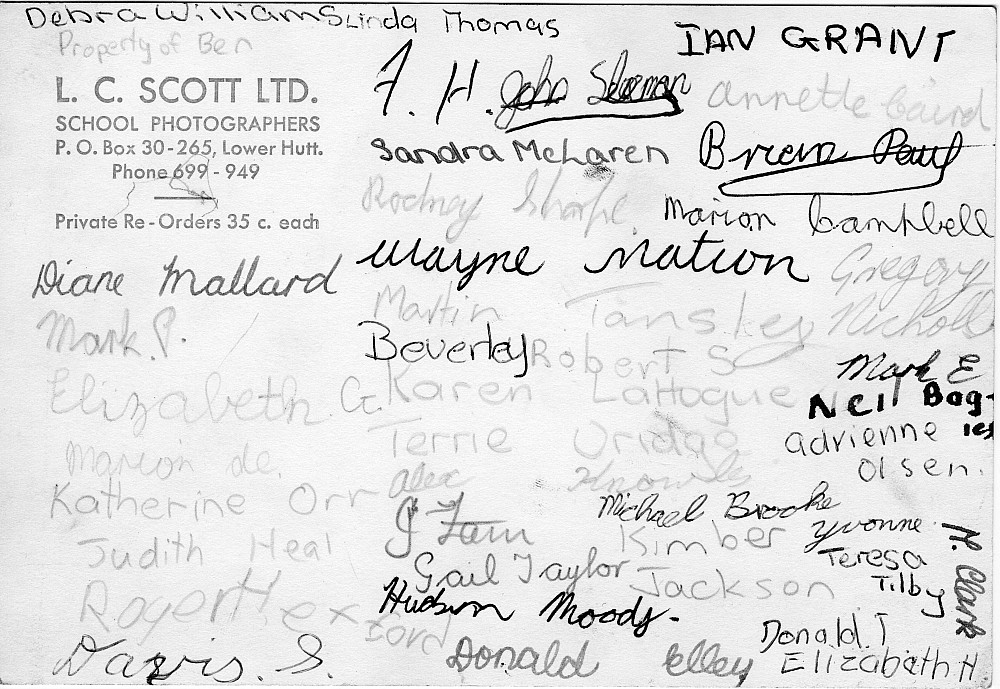 Debra Williams Linda Thomas
Property of Ben
IAN GRANT
L. C. SCOTT LTD.
SCHOOL PHOTOGRAPHERS
P. O. Box 30-265, Lower Hutt.
Phone 699-949
Private Re-Orders 35 c. each
F. H. John
annette Caird
Sandra McLaren
Brian Paul
Rodney Sharpe.
Marion Campbell
Diane Mallard
Wayne Mation
Gregory
Nicholls
Mark P.
Martin Tansley
Beverley
Robert S
Mark E
Elizabeth G.
Karen LaHogue
Neil Bag-
ies
Terrie Uridge
adrienne
Olsen.
Marion de.
alex Knowles
Katherine Orr
Michael Brooke
J Fam
Kimber
Yvonne
Judith Heal
Teresa
Tilby
M. Clark
Gail Taylor
Jackson
Roger Hex
ford
Hudson Moody.
Donald T
Davis. S.
Donald Elley
Elizabeth H.